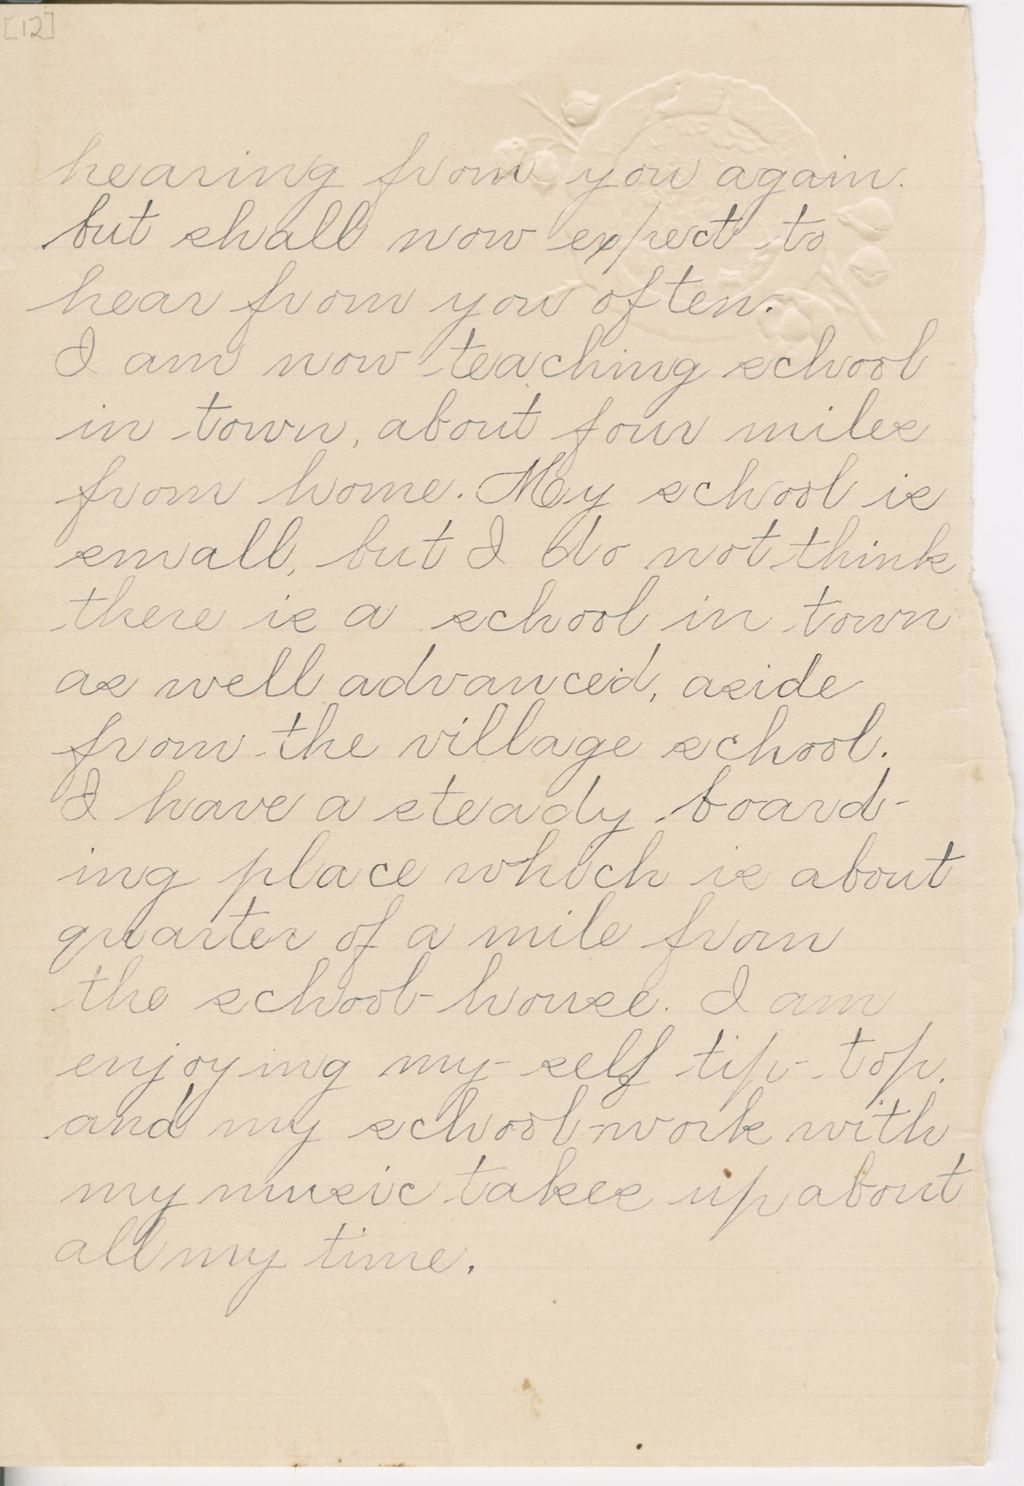 [12]
hearing from you again.
but shall now expect to
hear from you often.
I am now teaching school
in town, about four miles
from home. My school is
small, but I do not think
there is a school in town
as well advanced, aside
from the village school.
I have a steady board-
ing place which is about
quarter of a mile from
the school-house. I am
enjoying my-self tip-top.
and my school-work with
my music takes up about
all my time.